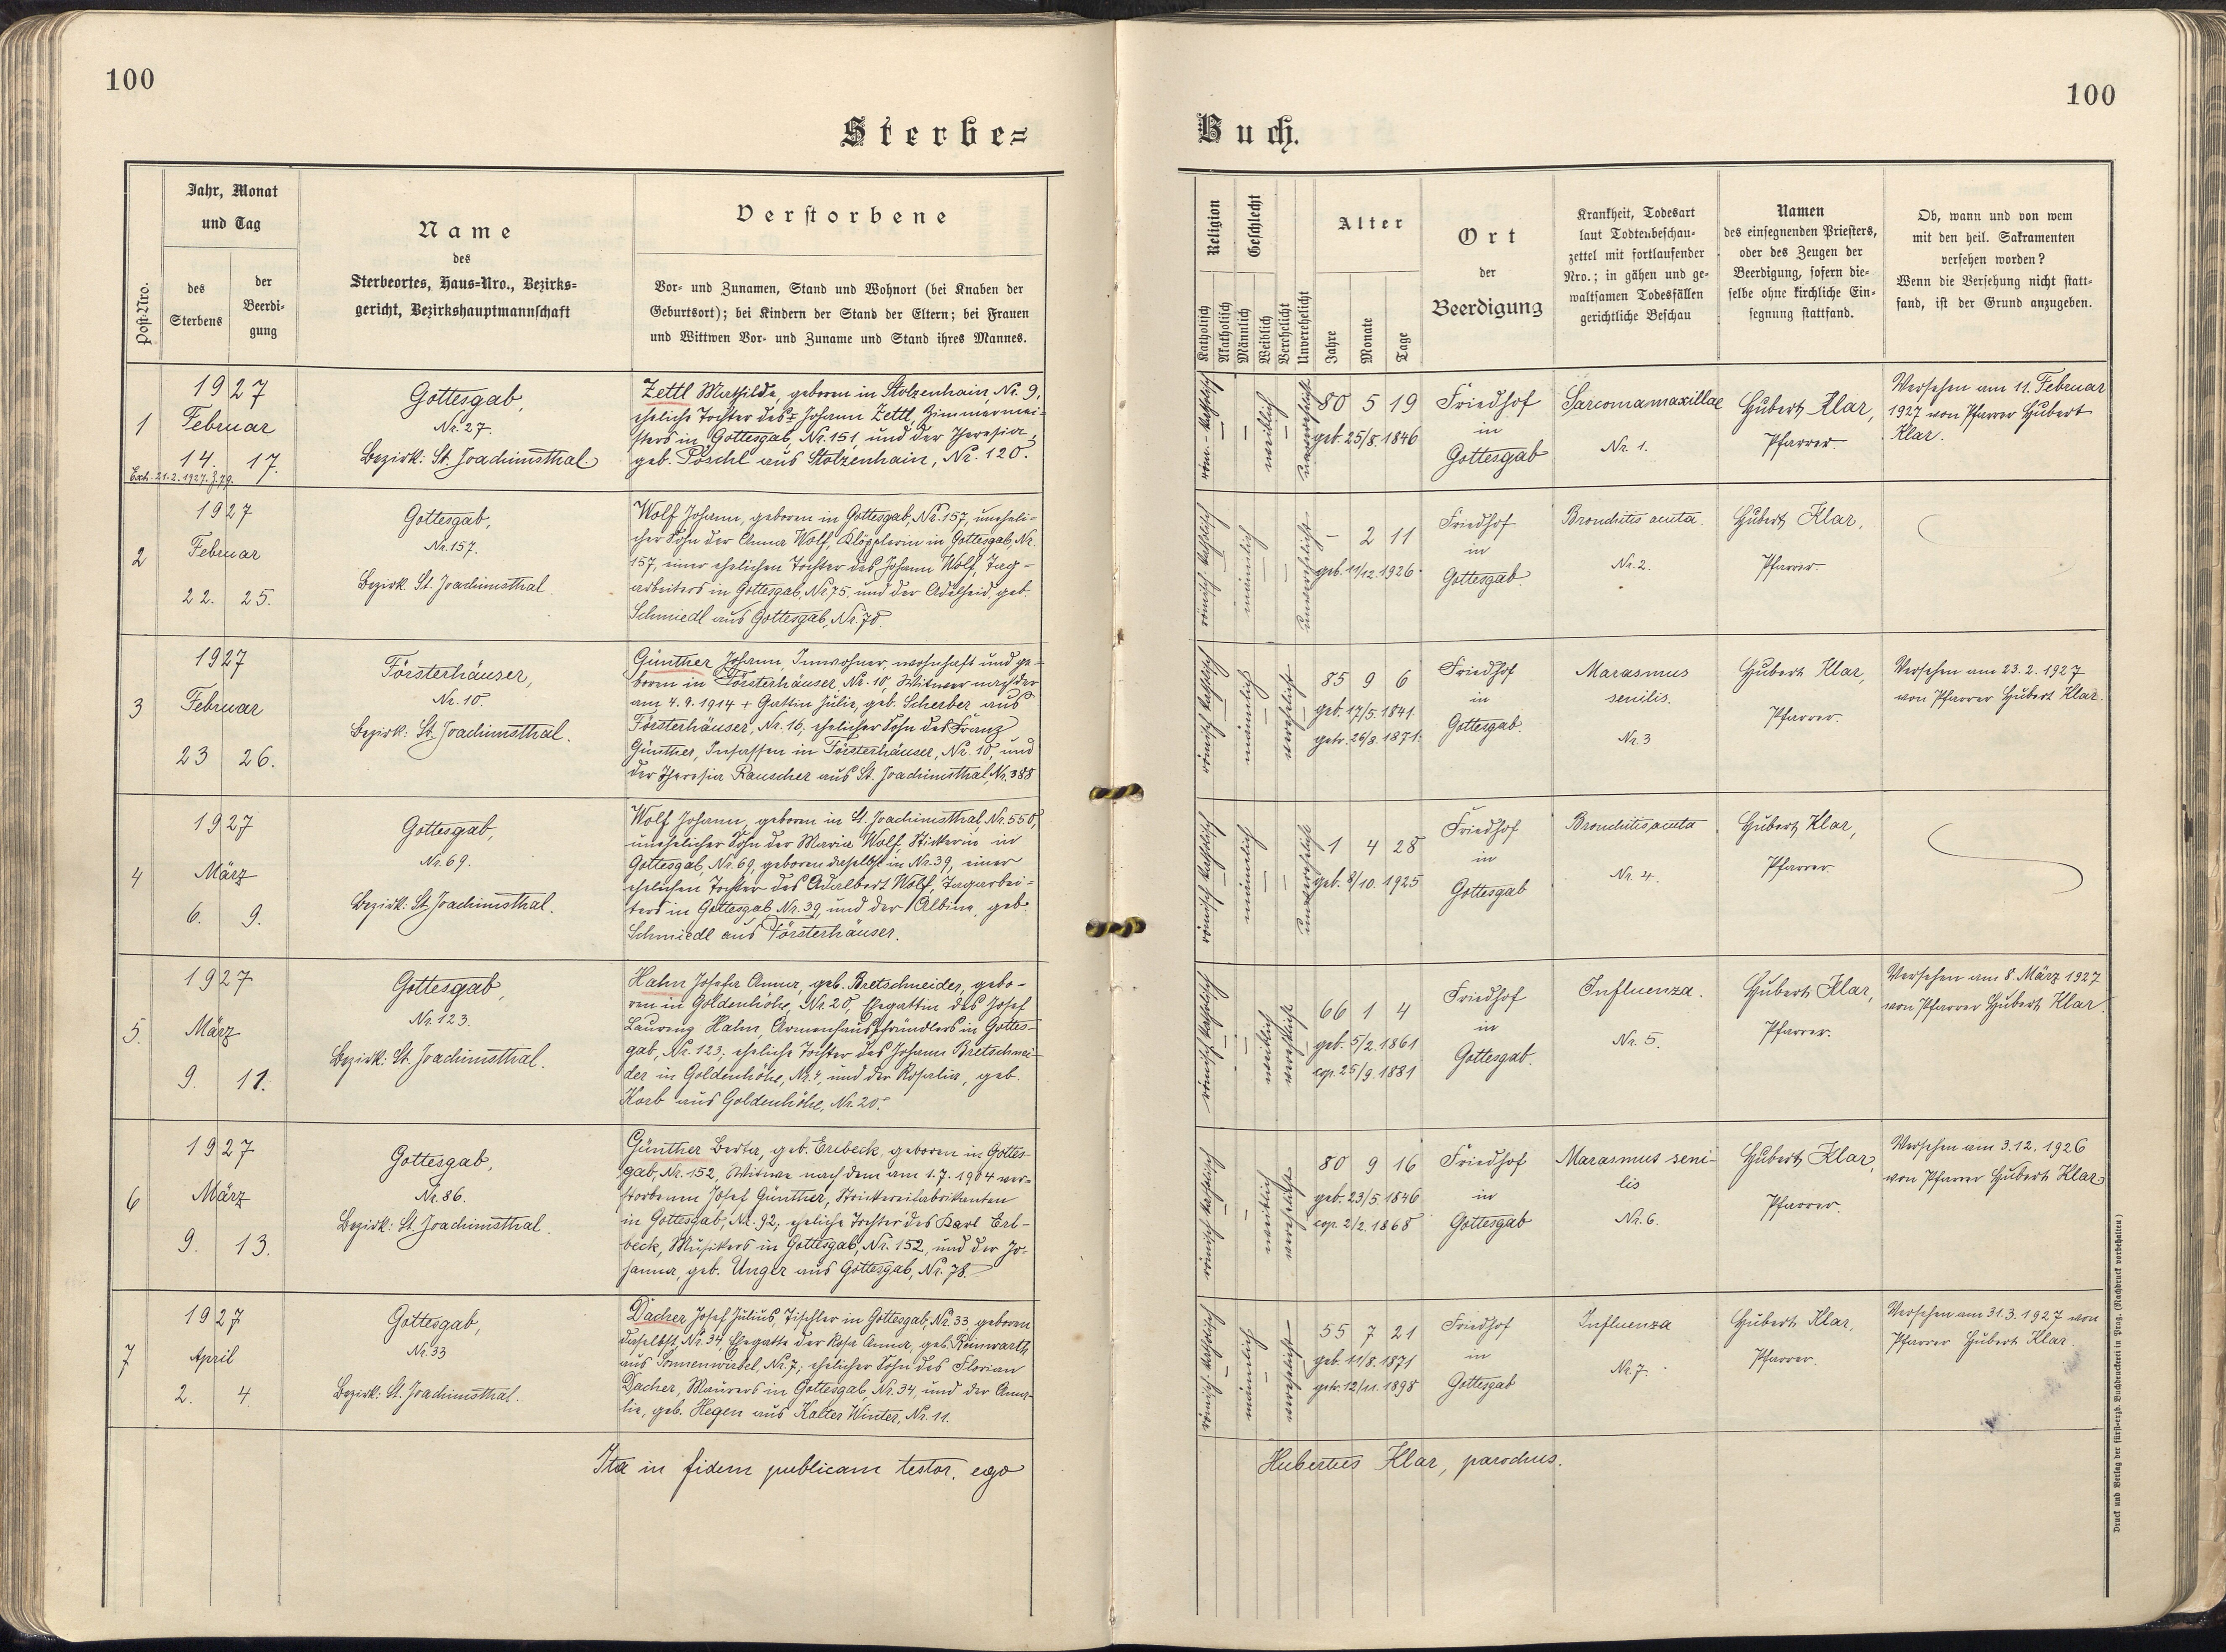 100
Sterbe=
Post-Nro.
Jahr, Monat
und Tag
des
Sterbens
der
Beerdi-
gung
Name
des
Sterbeortes, Haus-Nro., Bezirks-
gericht, Bezirkshauptmannschaft
Verstorbene
Vor- und Zunamen, Stand und Wohnort (bei Knaben der
Geburtsort); bei Kindern der Stand der Eltern; bei Frauen
und Wittwen Vor- und Zuname und Stand ihres Mannes.
1
1927
Februar
14. 17.
Exh. 21.2.1927. Z.79.
Gottesgab,
Nr. 27.
Bezirk: St. Joachimsthal.
Zettl Mathilde, geboren in Stolzenhain, Nr. 9,
eheliche Tochter des + Johann Zettl, Zimmermei-
sters in Gottesgab, Nr. 151, und der Theresia,
geb. Pöschl aus Stolzenhain, Nr. 120.
2
1927
Februar
22. 25.
Gottesgab,
Nr. 157.
Bezirk St. Joachimsthal.
Wolf Johann, geboren in Gottesgab, Nr. 157, uneheli-
cher Sohn der Anna Wolf, Klöpplerin in Gottesgab, Nr.
157, einer ehelichen Tochter des Johann Wolf, Tag-
arbeiters in Gottesgab, Nr. 75, und der Adelheid, geb.
Schmiedl aus Gottesgab, Nr. 70.
3
1927
Februar
23 26.
Försterhäuser,
Nr. 10.
Bezirk: St. Joachimsthal.
Günther Johann, Inwohner, wohnhaft und ge-
boren in Försterhäuser, Nr. 10, Witwer nach der
am 4.9.1914 + Gattin Julie, geb. Scherber aus
Försterhäuser, Nr. 16; ehelicher Sohn des Franz
Günther, Insassen in Försterhäuser, Nr. 10, und
der Theresia Rauscher aus St. Joachimsthal, Nr. 388
4
1927
März
6. 9.
Gottesgab,
Nr. 69.
Bezirk: St. Joachimsthal.
Wolf Johann, geboren in St. Joachimsthal, Nr. 550,
unehelicher Sohn der Maria Wolf, Stickerin in
Gottesgab, Nr. 69, geboren daselbst in Nr. 39, einer
ehelichen Tochter des Adalbert Wolf, Tagarbei-
ters in Gottesgab Nr. 39, und der Albine, geb.
Schmiedl aus Försterhäuser.
5.
1927
März
9. 11.
Gottesgab,
Nr. 123.
Bezirk: St. Joachimsthal.
Hahn Josefa Anna, geb. Bretschneider, gebo-
ren in Goldenhöhe, Nr. 20, Ehegattin des Josef
Laurenz Hahn, Armenhauspfründlers in Gottes-
gab, Nr. 123; eheliche Tochter des Johann Bretschnei-
der in Goldenhöhe, Nr. 4, und der Rosalia, geb.
Korb aus Goldenhöhe, Nr. 20.
6
1927
März
9. 13.
Gottesgab,
Nr. 86.
Bezirk: St. Joachimsthal.
Günther Berta, geb. Erlbeck, geboren in Gottes-
gab, Nr. 152, Witwe nach dem am 1.7.1904 ver-
storbenen Josef Günther, Strickereifabrikanten
in Gottesgab, Nr. 92; eheliche Tochter des Karl Erl-
beck, Musikers in Gottesgab, Nr. 152, und der Jo-
hanna, geb. Unger aus Gottesgab, Nr. 78.
7
1927
April
2. 4.
Gottesgab,
Nr. 33
Bezirk: St. Joachimsthal.
Dacher Josef Julius, Tischler in Gottesgab, Nr. 33, geboren
daselbst, Nr. 34, Ehegatte der Rosa Anna, geb. Reinwarth
aus Sonnenwirbel Nr. 7; ehelicher Sohn des Florian
Dacher, Maurers in Gottesgab, Nr. 34, und der Ama-
lie, geb. Hegen aus Kalter Winter, Nr. 11.
Ita in fidem publicam testor, ego
100
Buch.
Religion
Katholisch
Akatholisch
Geschlecht
Männlich
Weiblich
Verehelicht
Unverehelicht
Alter
Jahre
Monate
Tage
Ort
der
Beerdigung
Krankheit, Todesart
laut Todtenbeschau-
zettel mit fortlaufender
Nro.; in gähen und ge-
waltsamen Todesfällen
gerichtliche Beschau
Namen
des einsegnenden Priesters,
oder des Zeugen der
Beerdigung, sofern die-
selbe ohne kirchliche Ein-
segnung stattfand.
Ob, wann und von wem
mit den heil. Sakramenten
versehen worden?
Wenn die Versehung nicht statt-
fand, ist der Grund anzugeben.
röm.-katholisch
weiblich
unverehelicht
80 5 19
geb. 25/8. 1846
Friedhof
in
Gottesgab
Sarcoma maxillae
Nr. 1.
Hubert Klar,
Pfarrer.
Versehen am 11. Februar
1927 von Pfarrer Hubert
Klar.
römisch-katholisch
männlich
unverehelicht
– 2 11
geb. 11/12. 1926.
Friedhof
in
Gottesgab.
Bronchitis acuta.
Nr. 2.
Hubert Klar,
Pfarrer.
römisch-katholisch
männlich
verehelicht
85 9 6
geb. 17/5. 1841.
getr. 26/8. 1871.
Friedhof
in
Gottesgab.
Marasmus
senilis.
Nr. 3
Hubert Klar,
Pfarrer.
Versehen am 23.2.1927
von Pfarrer Hubert Klar.
römisch-katholisch
männlich
unverehelicht
1 4 28
geb. 8/10. 1925
Friedhof
in
Gottesgab
Bronchitis acuta
Nr. 4.
Hubert Klar,
Pfarrer.
römisch-katholisch
weiblich
verehelicht
66 1 4
geb. 5/2. 1861
cop. 25/9. 1881
Friedhof
in
Gottesgab.
Influenza.
Nr. 5.
Hubert Klar,
Pfarrer.
Versehen am 8. März 1927
von Pfarrer Hubert Klar.
römisch-katholisch
weiblich
verehelicht
80 9 16
geb. 23/5. 1846
cop. 2/2. 1868
Friedhof
in
Gottesgab
Marasmus seni-
lis
Nr. 6.
Hubert Klar,
Pfarrer.
Versehen am 3.12.1926
von Pfarrer Hubert Klar
römisch-katholisch
männlich
verehelicht
55 7 21
geb. 11/8. 1871
getr. 12/11. 1898
Friedhof
in
Gottesgab
Influenza
Nr. 7.
Hubert Klar,
Pfarrer.
Versehen am 31.3.1927 von
Pfarrer Hubert Klar.
Hubertus Klar, parochus.
Druck und Verlag der fürst-erzb. Buchdruckerei in Prag. (Nachdruck vorbehalten)